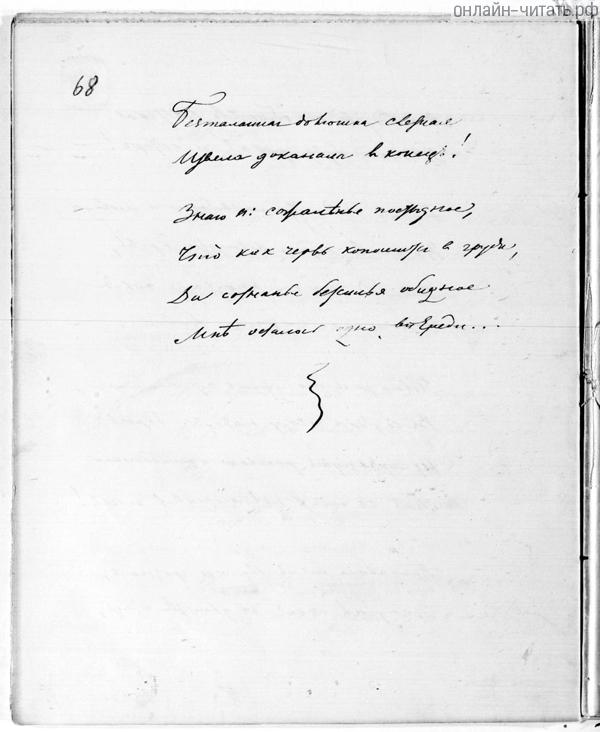 онлайн-читать.рф
68
Безталанная долюшка
Извела доканала в конецъ!
Знаю я: сожалѣнье постыдное,
Что как червь копошится в груди,
Да сознанье безсилья обидное
Мнѣ осталось одно впереди...